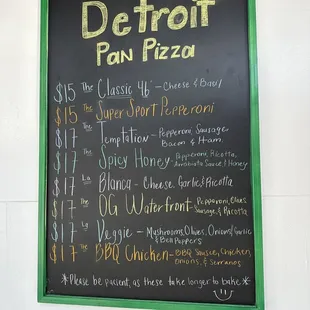 Detroit
Pan Pizza
$15 The Classic 46' - Cheese & Basil
$15 The Super Sport Pepperoni
$17 The Temptation - Pepperoni, Sausage,
Bacon & Ham
$17 The Spicy Honey Pepperoni, Ricotta,
Arrabiata Sauce & Honey
$17 La Blanca - Cheese, Garlic, & Ricotta
$17 The OG Waterfront - Pepperoni, Olives,
Sausage, & Ricotta
$17 La Veggie - Mushrooms, Olives, Onions, Garlic
& Bell Peppers
$17 The BBQ Chicken - BBQ Sauce, Chicken,
Onions, & Serranos
*Please be patient, as these take longer to bake*